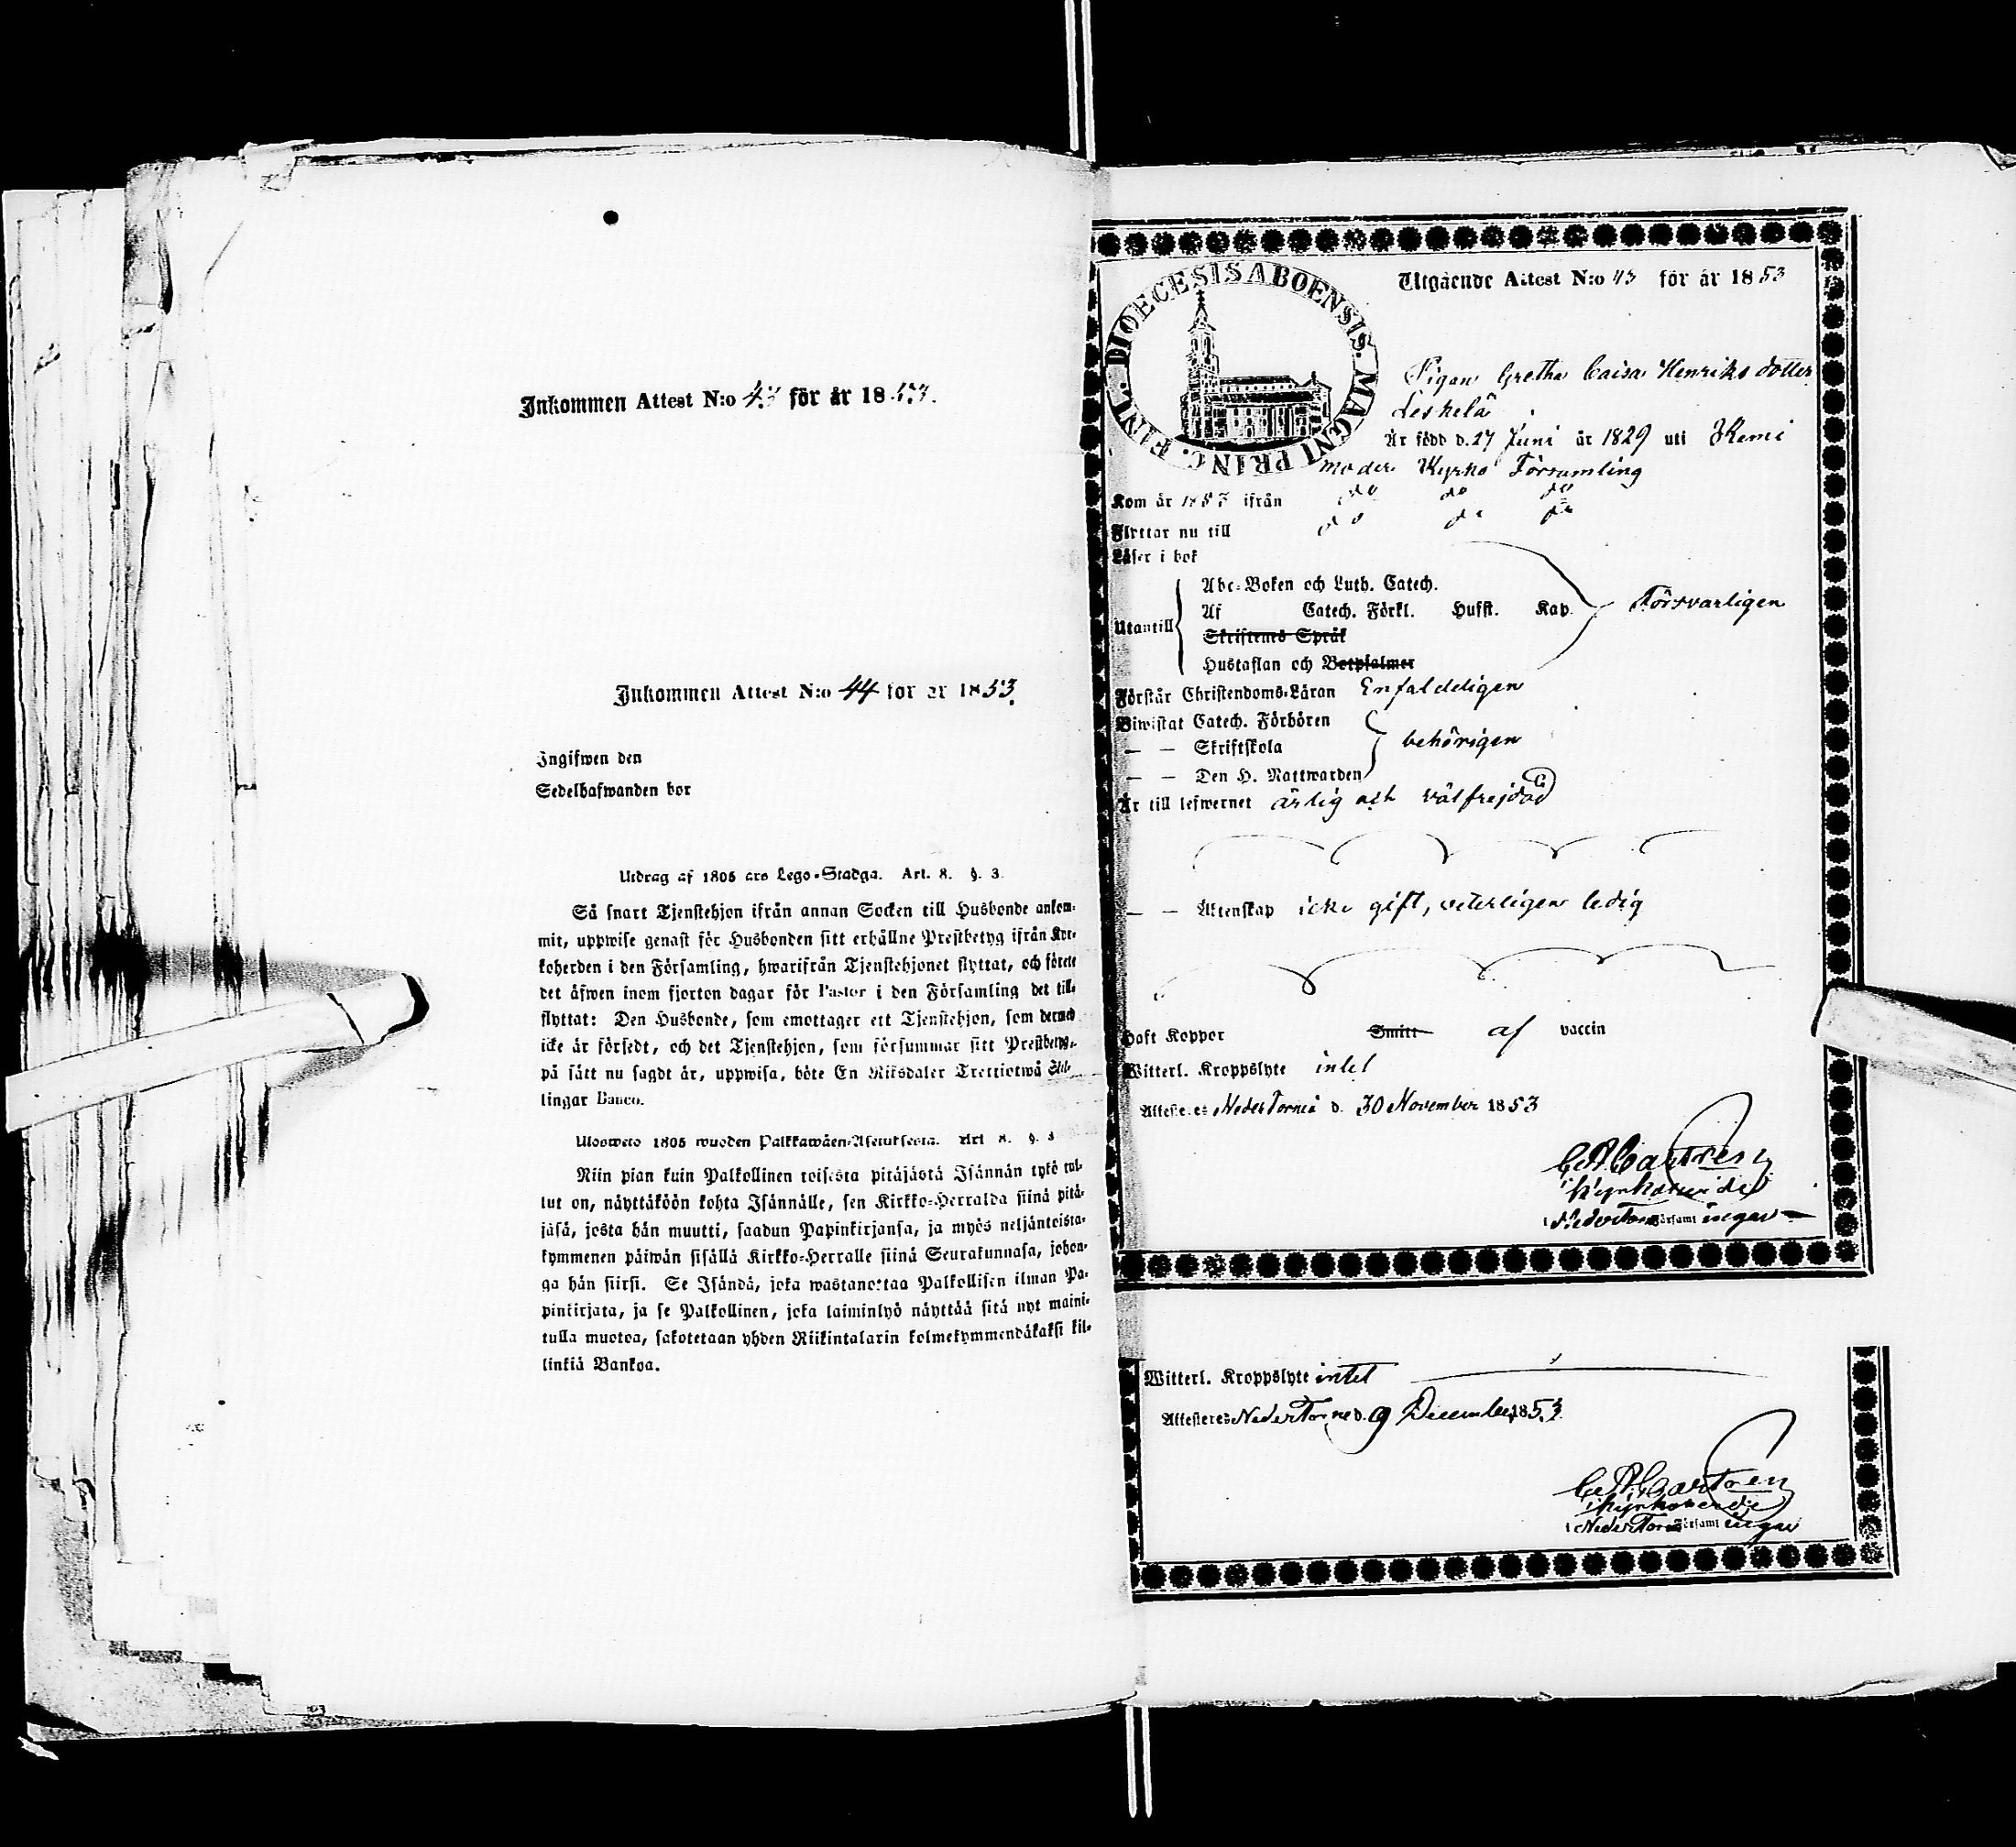 Inkommen Attest N:o 43 för år 1853.
Inkommen Attest N:o 44 för år 1853.
Ingifwen den
Sedelhafwanden bor
Utdrag af 1805 års Lego-Stadga. Art. 8. §. 3.
Så snart Tjenstehjon ifrån annan Socken till Husbonde ankom-
mit, uppwise genast för Husbonden sitt erhållne Prestbetyg ifrån Kyr-
koherden i den Församling, hwarifrån Tjenstehjonet flyttat, och förete
det äfwen inom fjorton dagar för Pastor i den Församling det till-
flyttat: Den Husbonde, som emottager ett Tjenstehjon, som dermed
icke är försedt, och det Tjenstehjon, som försummar sitt Prestbetyg,
på sätt nu sagdt är, uppwisa, böte En Riksdaler Trettiotwå Skil-
lingar Banco.
Ulosweto 1805 wuoden Palkkawäen-Asetuksesta. Art. 8. §. 3
Niin pian kuin Palkollinen toisesta pitäjästä Isännän tykö tul-
lut on, näyttäköön kohta Isännälle, sen Kirkko-Herralda siinä pitä-
jäsä, josta hän muutti, saadun Papinkirjansa, ja myös neljäntoista-
kymmenen päiwän sisällä Kirkko-Herralle siinä Seurakunnasa, johon-
ga hän siirsi. Se Isändä, joka wastanottaa Palkollisen ilman Pa-
pinkirjata, ja se Palkollinen, joka laiminlyö näyttää sitä nyt maini-
tulla muotoa, sakotetaan yhden Riikintalarin kolmekymmendäkaksi kil-
linkiä Bankoa.
DIOECESIS ABOENSIS. MAGNI PRINC. FINL.
Utgående Attest N:o 43 för år 1853
Pigan Gretha Caisa Henriksdotter
Leskelä
Är född d. 27 Juni år 1829 uti Kemi
moder Kyrko Församling
Kom år 1853 ifrån do do do
Flyttar nu till do do do
Läser i bok
Abc-Boken och Luth. Catech.
Utantill Af Catech. Förkl. Hufst. Kap. Försvarligen
Skriftenes Språk
Hustaflan och Botpsalmer
Förstår Christendoms-Läran Enfaldeligen
Biwistat Catech. Förhören
— — Skriftskola behörigen
— — Den H. Nattwarden
Är till lefwernet ärlig och välfrejdad
— — Äktenskap icke gift, veterligen ledig
Haft Koppor Smitt af vaccin
Witterl. Kroppslyte intet
Attesteres Neder Torneå d. 30 November 1853
C A Castren
Kyrkoherde
i Neder Torneå Församlingar
Witterl. Kroppslyte intet
Attesteres Neder Torneå d. 9 December 1853
C A Castren
Kyrkoherde
i Neder Torneå Församlingar